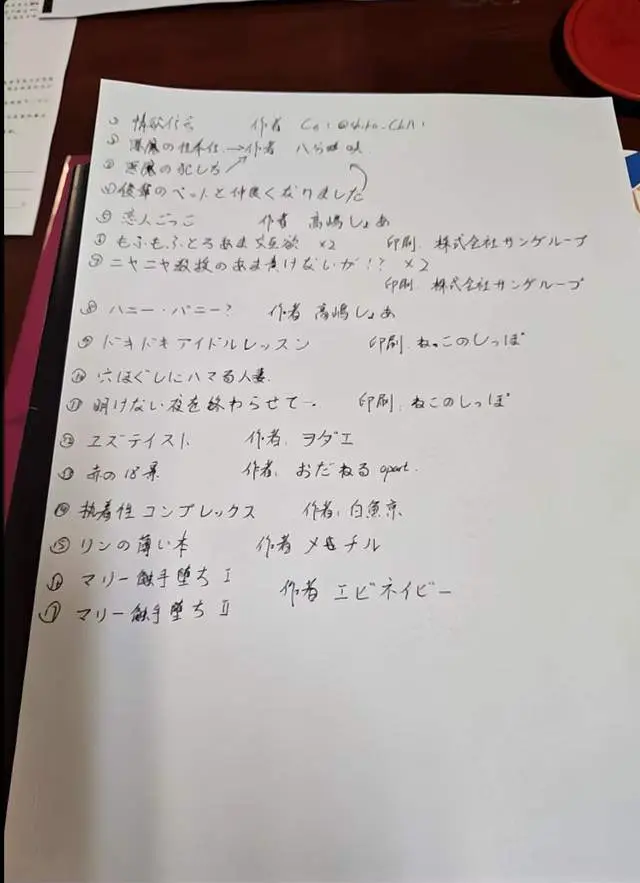 ① 情欲伝言 作者 Coi
② 悪魔の性本性 → 作者
③ 悪魔の犯しろ
④ 後輩のペットと仲良くなりました
⑤ 恋人ごっこ 作者 高嶋しょあ
⑥ もふもふとろあま交互欲 ×2 印刷. 株式会社サングループ
⑦ ニヤニヤ教授のあま責けないが!? ×2
印刷. 株式会社サングループ
⑧ ハニー・バニー? 作者 高嶋しょあ
⑨ ドキドキアイドルレッスン 印刷. ねっこのしっぽ
⑩ 穴ほぐしにハマる人妻.
⑪ 明けない夜を終わらせて. 印刷. ねこのしっぽ
⑫ エズテイスト 作者. ヲダエ
⑬ 赤の18系 作者. おだねる apart.
⑭ 執着性コンプレックス 作者. 白魚京
⑮ リンの薄い本 作者 メセチル
⑯ マリー触手堕ち I
作者 エビネイビー
⑰ マリー触手堕ち II